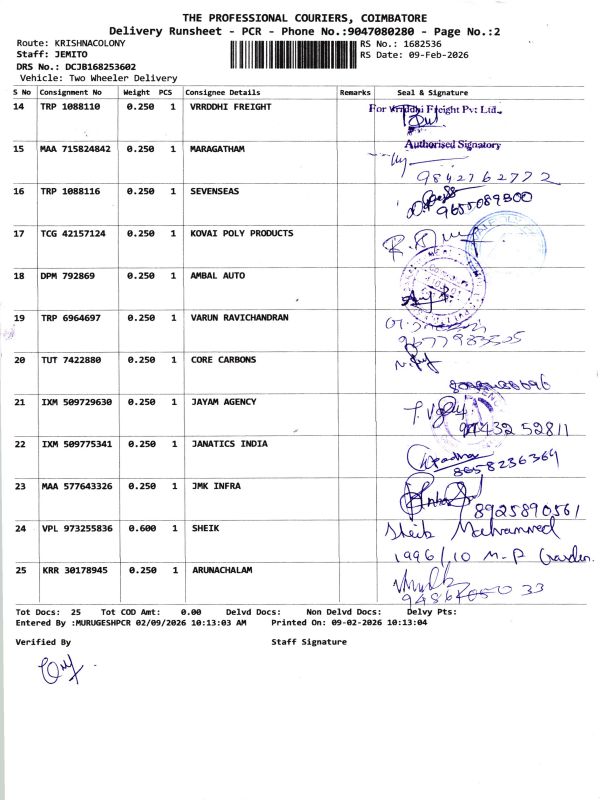 THE PROFESSIONAL COURIERS, COIMBATORE
Delivery Runsheet - PCR - Phone No.:9047080280 - Page No.:2
Route: KRISHNACOLONY RS No.: 1682536
Staff: JEMITO RS Date: 09-Feb-2026
DRS No.: DCJB168253602
Vehicle: Two Wheeler Delivery
S No Consignment No Weight PCS Consignee Details Remarks Seal & Signature
14 TRP 1088110 0.250 1 VRRDDHI FREIGHT For Vrrddhi Freight Pvt Ltd.,
Authorised Signatory
15 MAA 715824842 0.250 1 MARAGATHAM
9842762772
16 TRP 1088116 0.250 1 SEVENSEAS
9655089300
17 TCG 42157124 0.250 1 KOVAI POLY PRODUCTS
18 DPM 792869 0.250 1 AMBAL AUTO
19 TRP 6964697 0.250 1 VARUN RAVICHANDRAN
20 TUT 7422880 0.250 1 CORE CARBONS
21 IXM 509729630 0.250 1 JAYAM AGENCY
94432 52811
22 IXM 509775341 0.250 1 JANATICS INDIA
8658236364
23 MAA 577643326 0.250 1 JMK INFRA
8925890561
24 VPL 973255836 0.600 1 SHEIK Sheik Mohammed
1996/10 M-P Garden.
25 KRR 30178945 0.250 1 ARUNACHALAM
Tot Docs: 25 Tot COD Amt: 0.00 Delvd Docs: Non Delvd Docs: Delvy Pts:
Entered By :MURUGESHPCR 02/09/2026 10:13:03 AM Printed On: 09-02-2026 10:13:04
Verified By Staff Signature